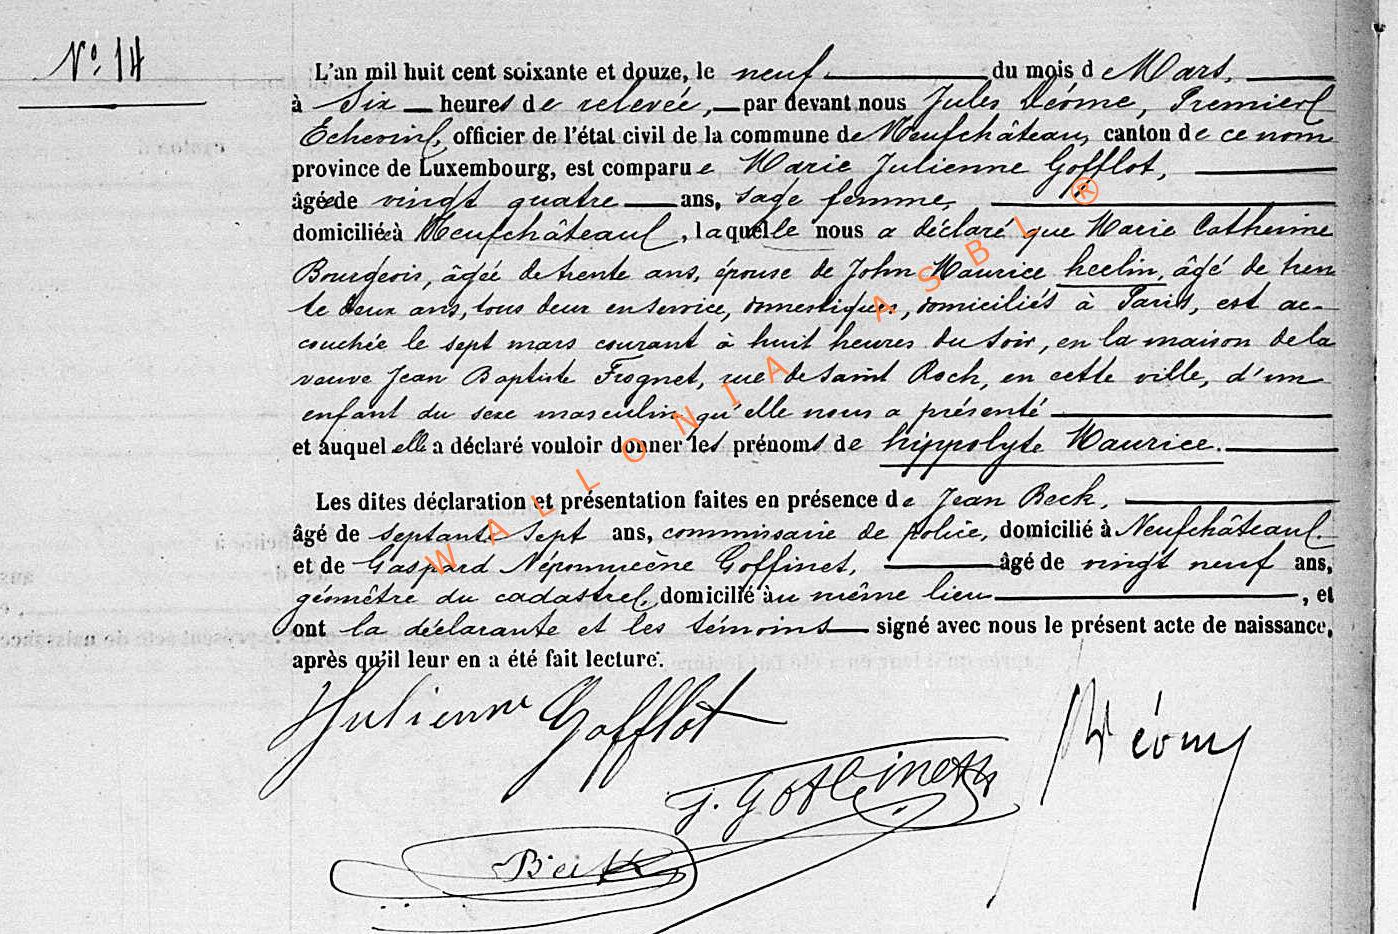 N° 14
L'an mil huit cent soixante et douze, le neuf du mois d Mars,
à Six heures de relevée, par devant nous Jules Déome, Premier
Echevin, officier de l'état civil de la commune de Neufchâteau, canton de ce nom
province de Luxembourg, est comparue Marie Julienne Gofflot,
âgée de vingt quatre ans, sage femme,
domiciliée à Neufchâteau, laquelle nous a déclaré que Marie Catherine
Bourgeois, âgée de trente ans, épouse de John Maurice heelin, âgé de tren
te deux ans, tous deux en service, domestiques, domiciliés à Paris, est ac-
couchée le sept mars courant à huit heures du soir, en la maison de la
veuve Jean Baptiste Frognet, rue de saint Roch, en cette ville, d'un
enfant du sexe masculin qu'elle nous a présenté
et auquel elle a déclaré vouloir donner les prénoms de hippolyte Maurice.
Les dites déclaration et présentation faites en présence de Jean Beck,
âgé de septante sept ans, commissaire de police, domicilié à Neufchâteau.
et de Gaspard Népomucène Goffinet, âgé de vingt neuf ans,
géomètre du cadastre, domicilié au même lieu, et
ont la déclarante et les témoins signé avec nous le présent acte de naissance,
après qu'il leur en a été fait lecture.
Julienne Gofflot
Déome
G. Goffinet
Beck
WALLONIA ASBL ®